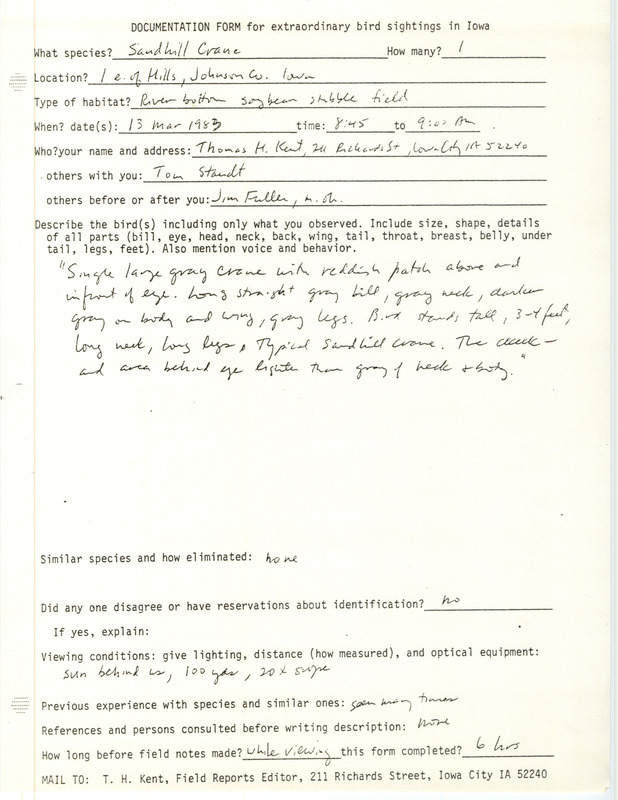 DOCUMENTATION FORM for extraordinary bird sightings in Iowa
What species? Sandhill Crane How many? 1
Location? 1 e. of Hills, Johnson Co. Iowa
Type of habitat? River bottom soybean stubble field
When? date(s): 13 Mar 1983 time: 8:45 to 9:00 AM
Who?your name and address: Thomas H. Kent, 211 Richards St, Iowa City IA 52240
others with you: Tom Staudt
others before or after you: Jim Fuller, m.oh.
Describe the bird(s) including only what you observed. Include size, shape, details
of all parts (bill, eye, head, neck, back, wing, tail, throat, breast, belly, under
tail, legs, feet). Also mention voice and behavior.
"Single large gray crane with reddish patch above and
in front of eye. Long straight gray bill, gray neck, darker
gray on body and wing, gray legs. Bird stands tall, 3-4 feet,
long neck, long legs, Typical Sandhill Crane. The cheek
and area behind eye lighter than gray of neck & body."
Similar species and how eliminated: none
Did any one disagree or have reservations about identification? no
If yes, explain:
Viewing conditions: give lighting, distance (how measured), and optical equipment:
sun behind us, 100 yds, 20x scope
Previous experience with species and similar ones: seen many times
References and persons consulted before writing description: none
How long before field notes made? while viewing this form completed? 6 hrs
MAIL TO: T. H. Kent, Field Reports Editor, 211 Richards Street, Iowa City IA 52240